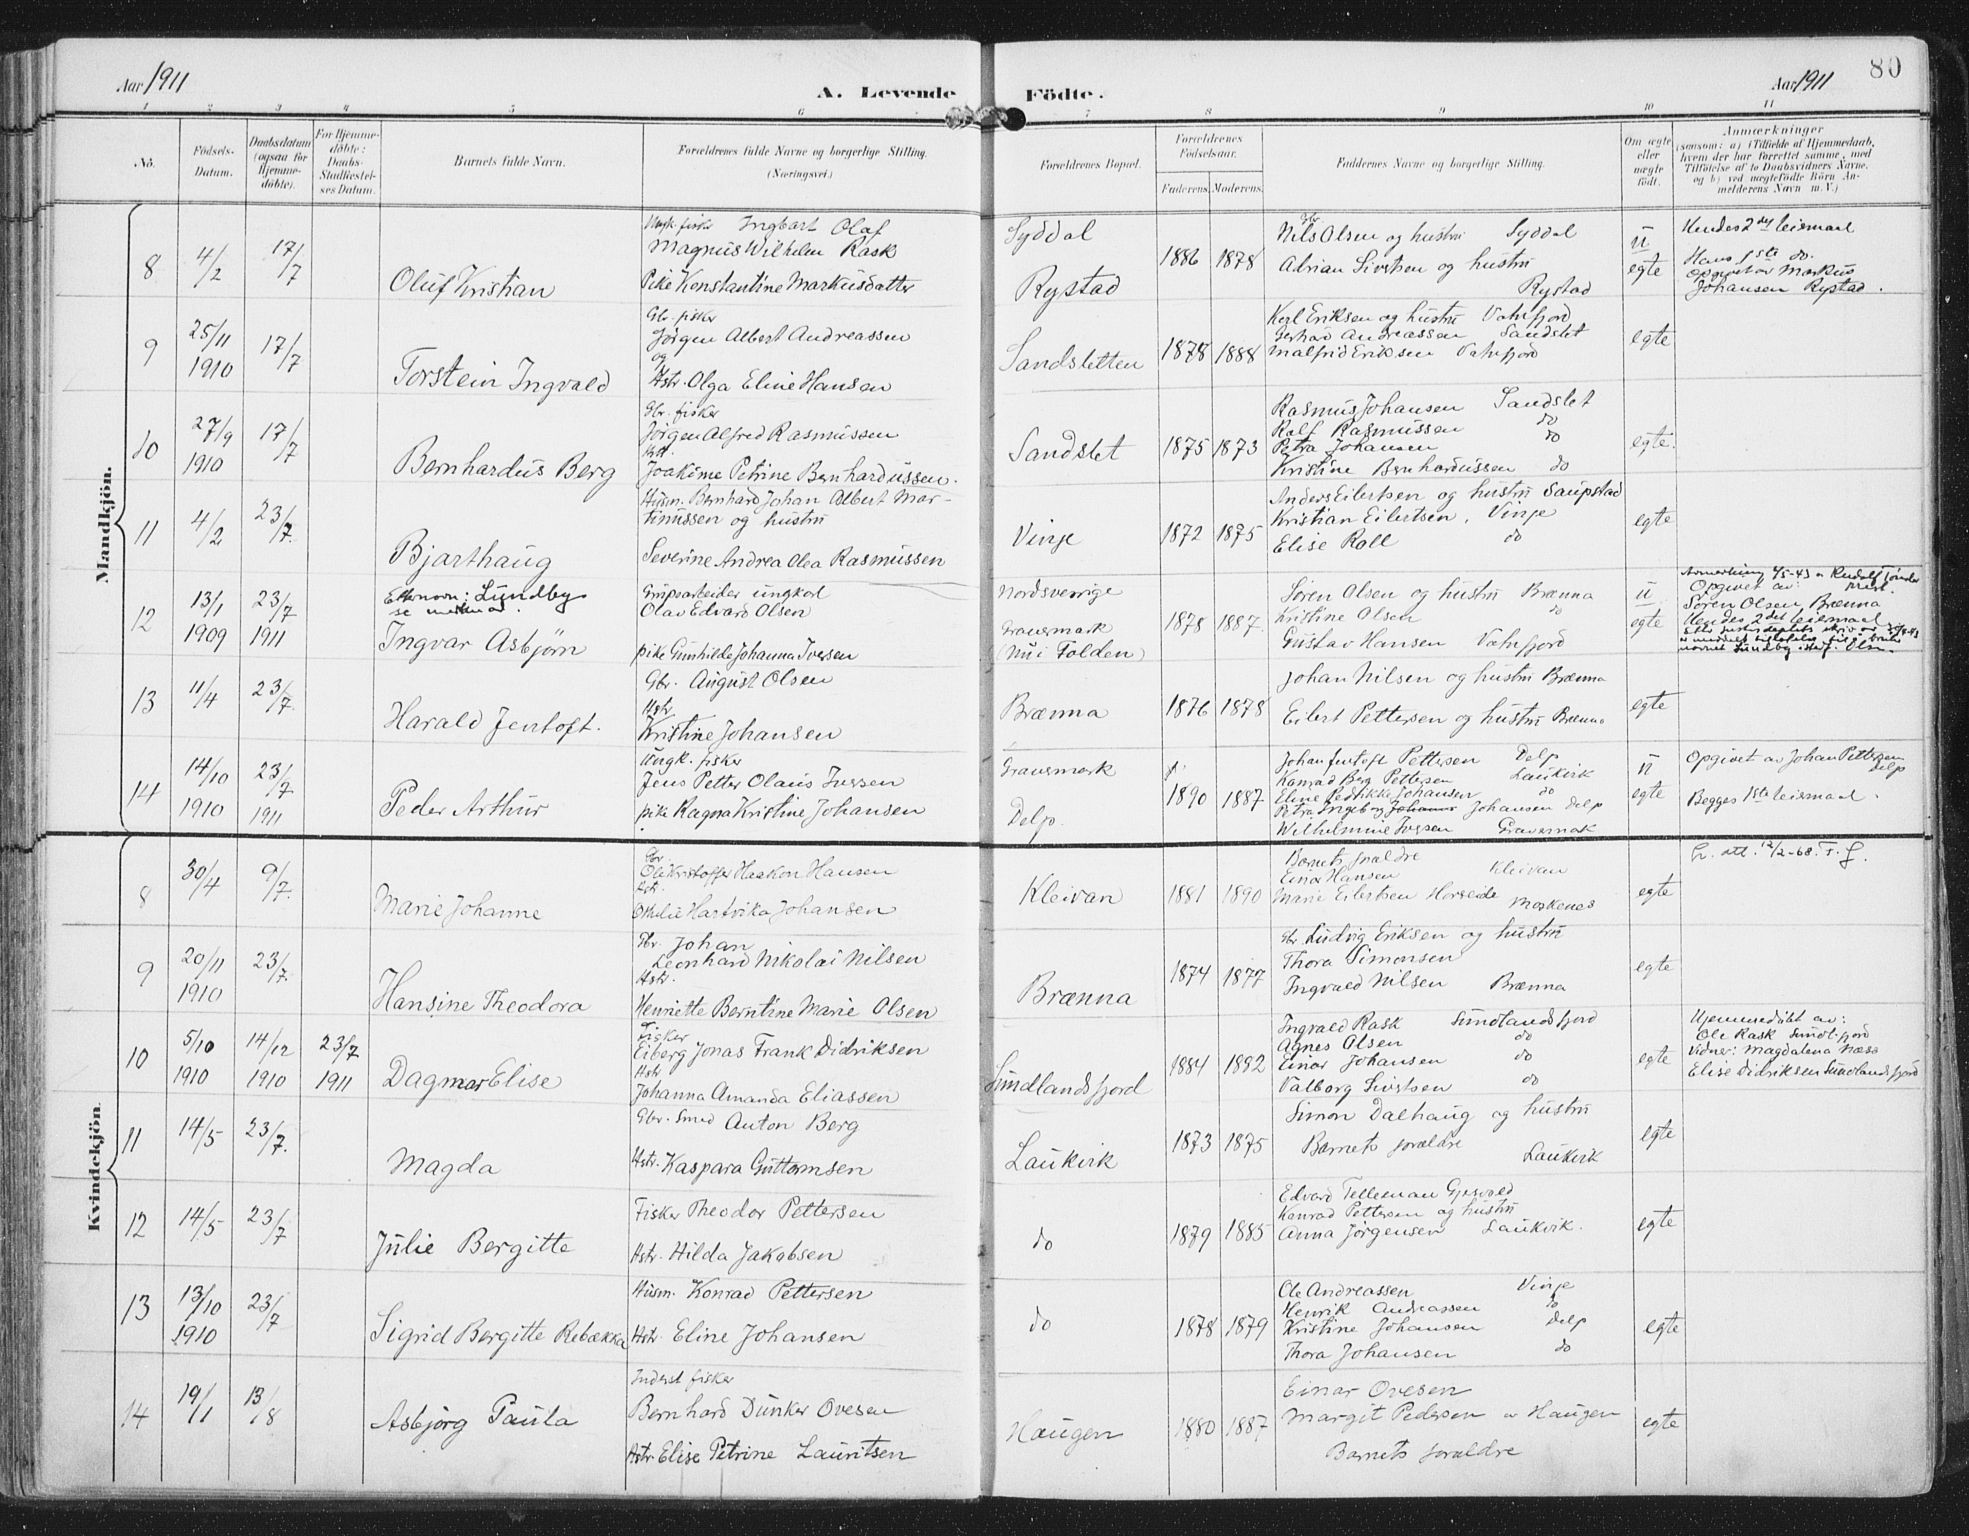 Aar 1911
A. Levende Födte.
Aar 1911
80
1 2 3 4 5 6 7 8 9 10 11
No.
Födsels-Datum.
Daabsdatum (ogsaa for Hjemme-döbte).
For Hjemme-döbte: Daabs-Stadfæstel-ses Datum.
Barnets fulde Navn.
Forældrenes fulde Navne og borgerlige Stilling. (Næringsvei.)
Forældrenes Bopæl.
Forældrenes Födselsaar.
Faderens. Moderens.
Faddernes Navne og borgerlige Stilling.
Om ægte eller uægte født.
Anmærkninger
(saasom: a) i Tilfælde af Hjemmedaab, hvem der har forrettet samme, med Tilföielse af to Daabsvidners Navne. og b) ved uægtefödte Börn An-melderens Navn m. V.)
Mandkjön.
8 4/2 17/7 Oluf Kristian
Ungk. fisker Ingbart Olaf
Magnus Wilhelm Rask
Pike Konstantine Markusdatter
Syddal
Rystad
1886 1878
Nils Olsen og hustru Syddal
Adrian Sivertsen og hustru
Rystad
u
egte
Hendes 2det leiermaal
Hans 1ste do.
Opgivet av Markus
Johansen Rystad.
9 25/11 1910 17/7 Torstein Ingvald
Gbr. fisker
Jørgen Albert Andreassen
og
Hstr. Olga Eline Hansen
Sandsletten
1878 1888
Karl Eriksen og hustru Vatnfjord
Gerhard Andreassen Sandslet
Malfrid Eriksen Vatnfjord
egte
10 27/9 1910 17/7 Bernhardus Berg
Gbr. fisker
Jørgen Alfred Rasmussen
Hstr.
Joakime Petrine Bernhardussen.
Sandslet
1875 1873
Rasmus Johansen Sandslet
Ralf Rasmussen do
Petra Johansen do
Kristine Bernhardussen do
egte.
11 4/2 23/7. Bjarthaug
Husm. Bernhard Johan Albert Mar-
tinussen og hustru
Severine Andrea Olea Rasmussen
Vinje
1872 1875
Anders Eilertsen og hustru Saupstad
Kristian Eilertsen, Vinje
Elise Roll do
egte
12 13/1 1909 23/7 1911
Etternavn: Lundby
se merknad.
Ingvar Asbjörn
Grupsarbeider ungkal
Olav Edvard Olsen
pike Gunhilde Johanna Iversen
Nordsverrige
Gravermark
(Nu i Folden)
1878 1887.
Søren Olsen og hustru Brænna
Kristine Olsen do
Gustav Hansen Vatnfjord
u
egte
Opgivet av:
Søren Olsen, Brænna
Hendes 2det leiermaal
13 11/4 23/7. Harald Jentoft.
Gbr. August Olsen
Hstr.
Kristine Johansen
Brænna
1876 1878
Johan Nilsen og hustru Brænna
Eilert Pettersen og hustru Brænna
egte
14 14/10 1910 23/7 1911 Peder Arthur
Ungk. fisker
Jens Petter Olaus Iversen
pike Ragna Kristine Johansen
Gravermark
Delp.
1890 1887
Johan Jentoft Pettersen Delp
Konrad Berg Pettersen Laukvik
Eline Fredrikke Johansen do
Petra Ingeborg Johansen Delp
Wilhelmine Iversen Gravermark
u
egte
Opgivet av Johan Pettersen
Delp
Begges 1ste leiermaal.
Kvindekjön.
8 30/4 9/7. Marie Johanne
Gbr.
Ole Kristoffer Haakon Hansen
Hstr.
Othilie Hartvika Johansen
Kleivan
1881 1890
Barnets forældre
Einar Hansen Kleivan
Marie Eilertsen Horseide Moskenes
egte
9 20/11 1910 23/7. Hansine Theodora
Gbr. Johan
Leonhard Nikolai Nilsen
Hstr.
Henriette Berntine Marie Olsen
Brænna
1874 1877
Gbr. Ludvig Eriksen og hustru
Thora Simonsen
Ingvald Nilsen Brænna
egte
10 5/10 1910 14/12 1910 23/7 1911 Dagmar Elise
Fisker
Eiberg Jonas Frank Didriksen
Hstr
Johanna Amanda Eliassen
Sundlandsfjord
1884 1892
Ingvald Rask Sundlandsfjord
Agnes Olsen do
Einar Johansen do
Valborg Sivertsen do
egte
Hjemmedøbt av:
Ole Rask Sundl.fjord
Vidner: Magdalena Næss
Elise Didriksen Sundlandsfjord
11 14/5 23/7. Magda
Gbr. Smed Anton Berg
Hstr. Kaspara Guttormsen
Laukvik
1873 1875
Simon Dalhaug og hustru
Barnets forældre
Laukvik
egte
12 14/5 23/7 Julie Bergitte
Fisker Theodor Pettersen
Hstr. Hilda Jakobsen
do
1879 1885
Edvard Telleman Gjesvold
Konrad Pettersen og hustru
Anna Jørgensen Laukvik.
egte
13 13/10 1910 23/7 Sigrid Bergitte Rebækka
Husm. Konrad Pettersen
Hstr. Eline Johansen
do
1878 1879
Ole Andreassen Vinje
Henrik Andreassen do
Kristine Johansen Delp
Thora Johansen do
egte
14 19/1 13/8 Asbjörg Paula
Inderst fisker
Bernhard Dunker Ovesen
Hstr. Elise Petrine Lauritsen
Haugen
1880 1887
Einar Ovesen
Margit Pedersen av Haugen
Barnets forældre
egte